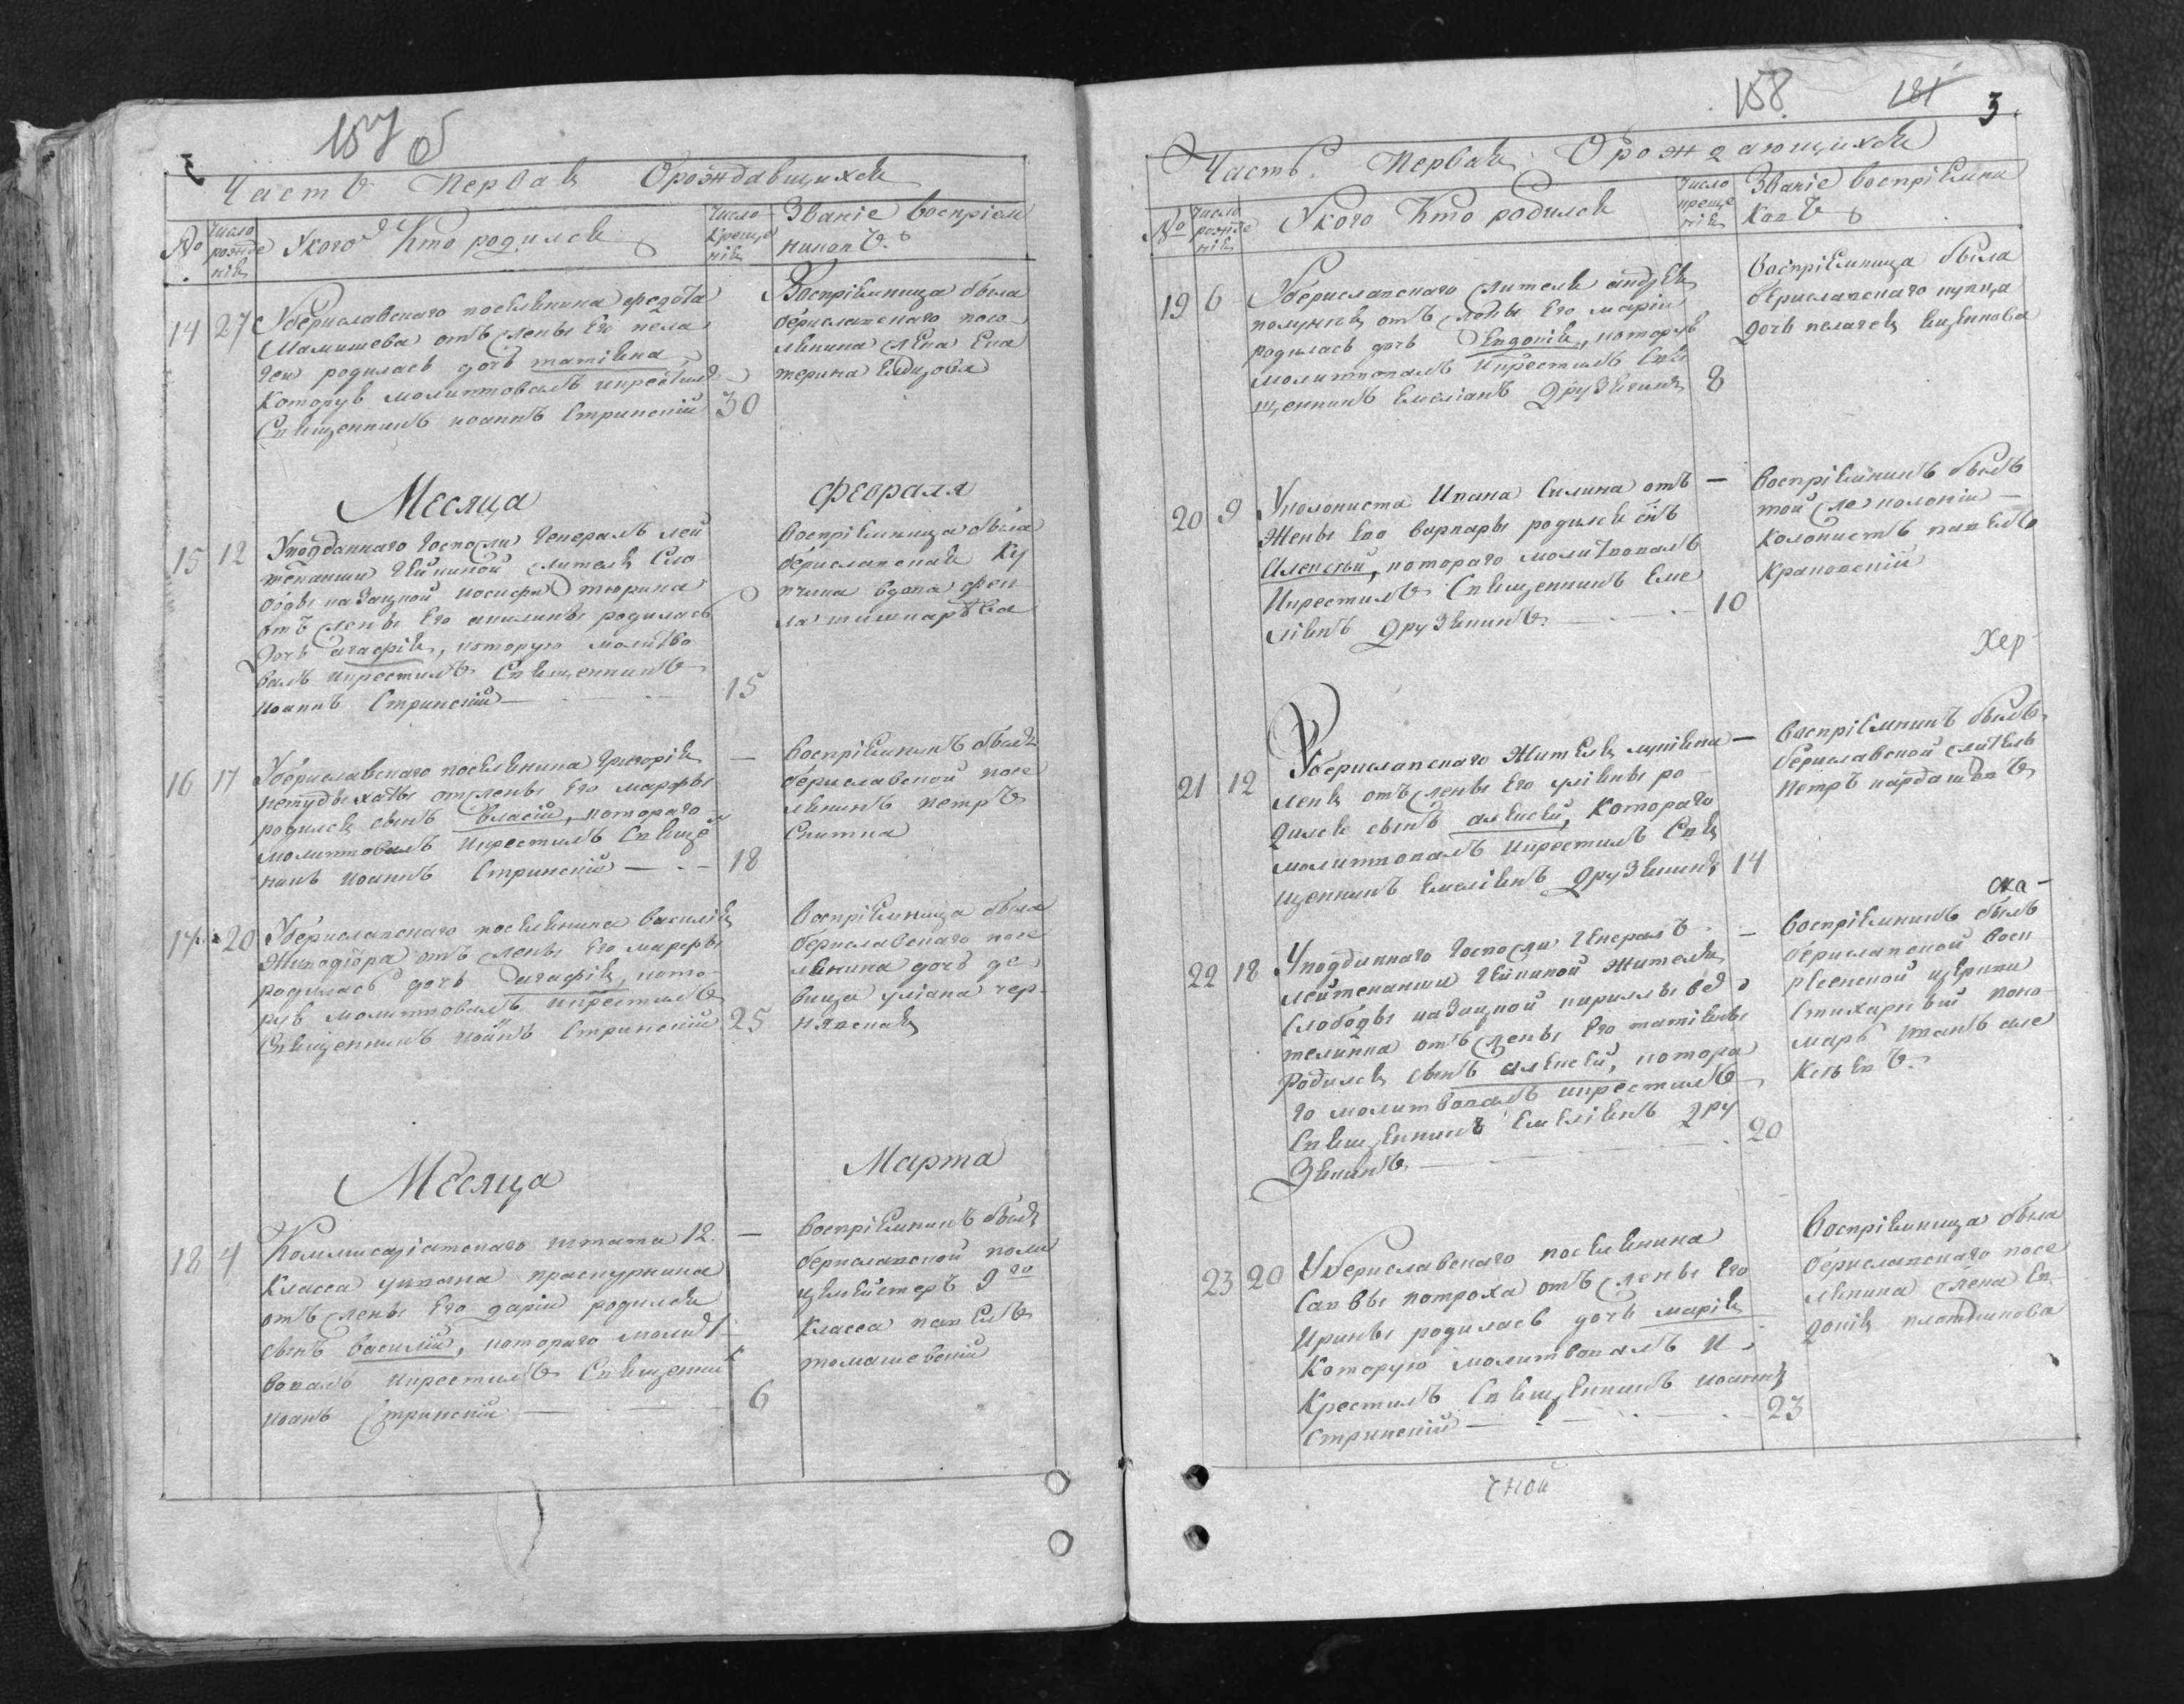 157 об
Часть Первая О рождавшихся
№ число рожденія
У кого Кто родился
число крещенія
Званіе воспріем
никовъ
14 27 У бериславского поселянина федота
Мамишева отъ жены Его пела
геи родилась дочь татіяна,
Которую молитвовалъ икрестилъ
Священникъ иоаннъ Стринскій 30
Воспріемница была
бериславского посе
лянина жена Ека
терина
Месяца февраля
15 12 Уподданнаго госпожи генералъ лей
тенанши жителя Сло
боды казацкой иосифа тюрина
отъ жены Его акилины родилась
дочь агафія, которую молитво
валъ икрестилъ Священникъ
иоаннъ Стринскій 15
воспріемница была
бериславская Ку
пчика вдова фек
ла
16 17 У бериславского поселянина григорія
нетудыхаты отжены Его марфы
родился сынъ власій, котораго
молитвовалъ икрестилъ Свяще
никъ иоаннъ Стринскій 18
воспріемникъ былъ
бериславской посе
лянинъ петръ
Скитка
17 20 У бериславского поселянина василія
отъ жены Его марфы
родилась дочь агафія, кото
рую молитвовалъ икрестилъ
Священникъ иоаннъ Стринскій 25
воспріемница была
бериславского посе
лянина дочь де
вица уліана чер
нявская
Месяца Марта
18 4 Коммисаріатскаго штата 12.
Класса
отъ жены Его даріи родился
сынъ василій, котораго молит
вовалъ икрестилъ Священникъ
иоанъ Стринскій 6
воспріемникъ былъ
бериславской поли
цмейстеръ 9го
Класса павелъ
томашевскій
158 181 3
Часть Первая О рождающихся
№ число рожденія
У кого Кто родился
число крещенія
Званіе воспріемни
ковъ
19 6 У бериславского жителя андрея
отъ жены Его маріи
родилась дочь Евдокія, которую
молитвовалъ икрестилъ Свя
щенникъ емеліанъ Друзякинъ 8
воспріемница была
бериславского купца
дочь пелагея
20 9 Уколониста Ивана Силина отъ
Жены Его варвары родился сынъ
Алексей, котораго молитвовалъ
Икрестилъ Священникъ Еме
ліянъ Друзякинъ. 10
воспріемникъ былъ
той же колоніи
Колонистъ павелъ
Крановскій
Хер
21 12 У бериславского Жителя
отъ жены Его уліяны ро
дился сынъ алексей, Котораго
молитвовалъ икрестилъ Свя
щенникъ Емеліянъ Друзякинъ 14
воспріемникъ былъ
бериславской житель
петръ
ска
22 18 Уподданнаго госпожи Генералъ
лейтенанши Жителя
Слободы казацкой кириллы
отъ жены Его татіяны
родился сынъ алексей, котора
го молитвовалъ икрестилъ
Священникъ Емеліянъ Дру
Зякинъ 20
воспріемникъ былъ
бериславской воск
ресенской церкви
Стихарный поно
марь иванъ але
ксеевъ
23 20 У бериславского поселянина
Саввы потроха отъ жены Его
Ирины родилась дочь марія
Которую молитвовалъ и
Крестилъ Священникъ иоаннъ
Стринскій 23
Воспріемница была
бериславского посе
лянина жена Ев
докія плотникова
чной